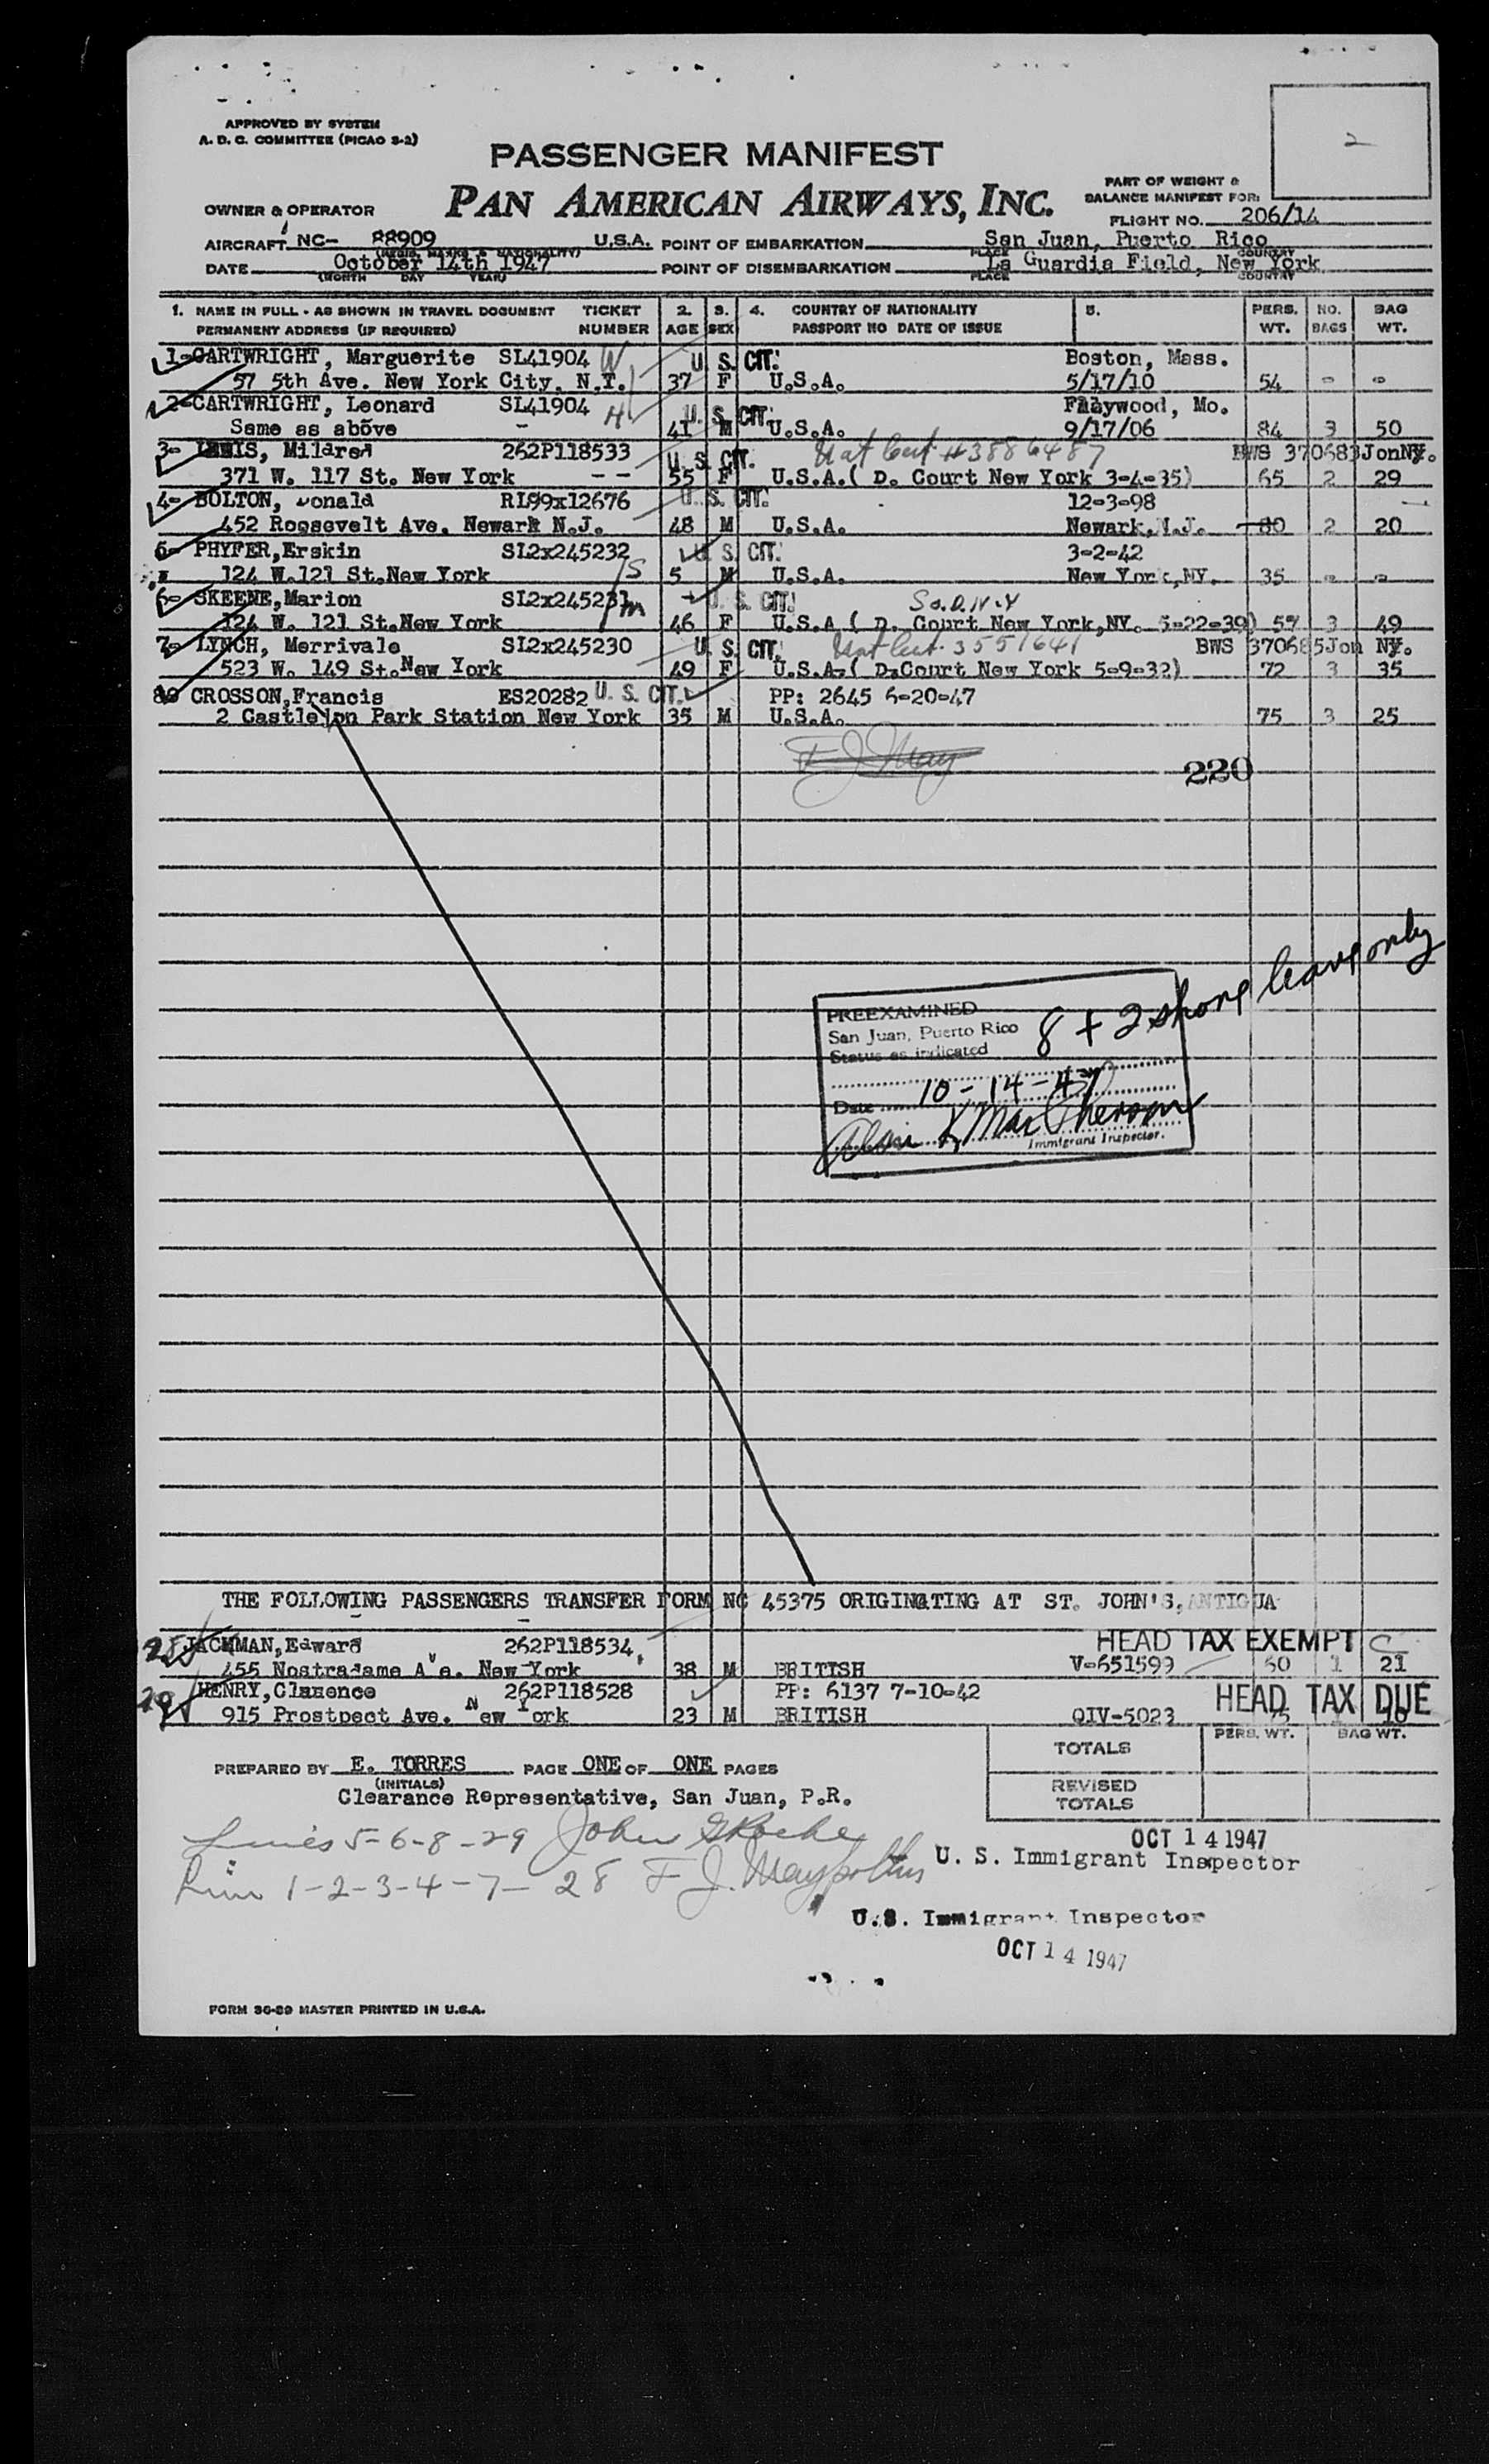 APPROVED BY SYSTEM
A. D. C. COMMITTEE (PICAO S-2)
2
PASSENGER MANIFEST
PAN AMERICAN AIRWAYS, INC.
PART OF WEIGHT &
BALANCE MANIFEST FOR:
OWNER & OPERATOR
FLIGHT NO. 206/14
AIRCRAFT NC- 88909 U.S.A. POINT OF EMBARKATION San Juan, Puerto Rico
(REGIS. MARKS & NATIONALITY) PLACE COUNTRY
DATE October 14th 1947 POINT OF DISEMBARKATION La Guardia Field, New York
(MONTH DAY YEAR) PLACE COUNTRY
1. NAME IN FULL - AS SHOWN IN TRAVEL DOCUMENT TICKET 2. 3. 4. COUNTRY OF NATIONALITY 5. PERS. NO. BAG
PERMANENT ADDRESS (IF REQUIRED) NUMBER AGE SEX PASSPORT NO DATE OF ISSUE WT. BAGS WT.
1-CARTWRIGHT, Marguerite SL41904 W U. S. CIT. Boston, Mass.
57 5th Ave. New York City, N.Y. 37 F U.S.A. 5/17/10 54 - -
2-CARTWRIGHT, Leonard SL41904 H U. S. CIT. Mo.
Same as above - 41 M U.S.A. 9/17/06 84 3 50
3- LEWIS, Mildred 262P118533 U. S. CIT. Nat Cert #3886487 BWS 370683JonNY.
371 W. 117 St. New York -- 55 F U.S.A.( D. Court New York 3-4-35) 65 2 29
4- BOLTON, Donald RL99x12676 U. S. CIT. 12-3-98
452 Roosevelt Ave. Newark N.J. 48 M U.S.A. Newark,N.J. 80 2 20
5- PHYFER,Erskin SI2x245232 U. S. CIT. 3-2-42
124 W.121 St.New York S 5 M U.S.A. New York,NY. 35 - -
6- SKEENE,Marion SI2x245231 m U. S. CIT. So.D.N.Y
124 W. 121 St.New York 46 F U.S.A ( D. Court New York,NY. 5-22-39) 57 3 49
7- LYNCH, Merrivale SI2x245230 U. S. CIT. Nat Cert. 3551641 BWS 370685Jon NY.
523 W. 149 St.New York 49 F U.S.A-( D.Court New York 5-9-32) 72 3 35
8 CROSSON,Francis ES20282 U. S. CIT. PP: 2645 6-20-47
2 Castleton Park Station New York 35 M U.S.A. 75 3 25
F J May
220
PREEXAMINED
San Juan, Puerto Rico 8 + 2 shore leave only
Status as indicated
Date 10-14-47
Immigrant Inspector.
THE FOLLOWING PASSENGERS TRANSFER FORM NC 45375 ORIGINATING AT ST. JOHN'S, ANTIGUA
28 JACKMAN,Edward 262P118534 HEAD TAX EXEMPT
455 Nostradame Ave. New York 38 M BRITISH V-651599 60 1 21
29 HENRY,Clarence 262P118528 PP: 6137 7-10-42 HEAD TAX DUE
915 Prostpect Ave. New York 23 M BRITISH QIV-5023
TOTALS PERS. WT. BAG WT.
PREPARED BY E. TORRES PAGE ONE OF ONE PAGES
(INITIALS)
REVISED
TOTALS
Clearance Representative, San Juan, P.R.
Lines 5-6-8-29 John G Roche
OCT 14 1947
U. S. Immigrant Inspector
1-2-3-4-7-28 F J. Maypothis
U.S. Immigrant Inspector
OCT 14 1947
FORM 30-89 MASTER PRINTED IN U.S.A.